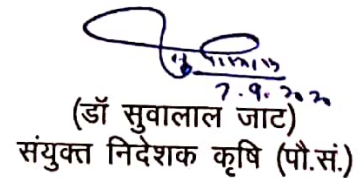 7.9.2020
(डॉ सुवालाल जाट)
संयुक्त निदेशक कृषि (पौ.सं.)